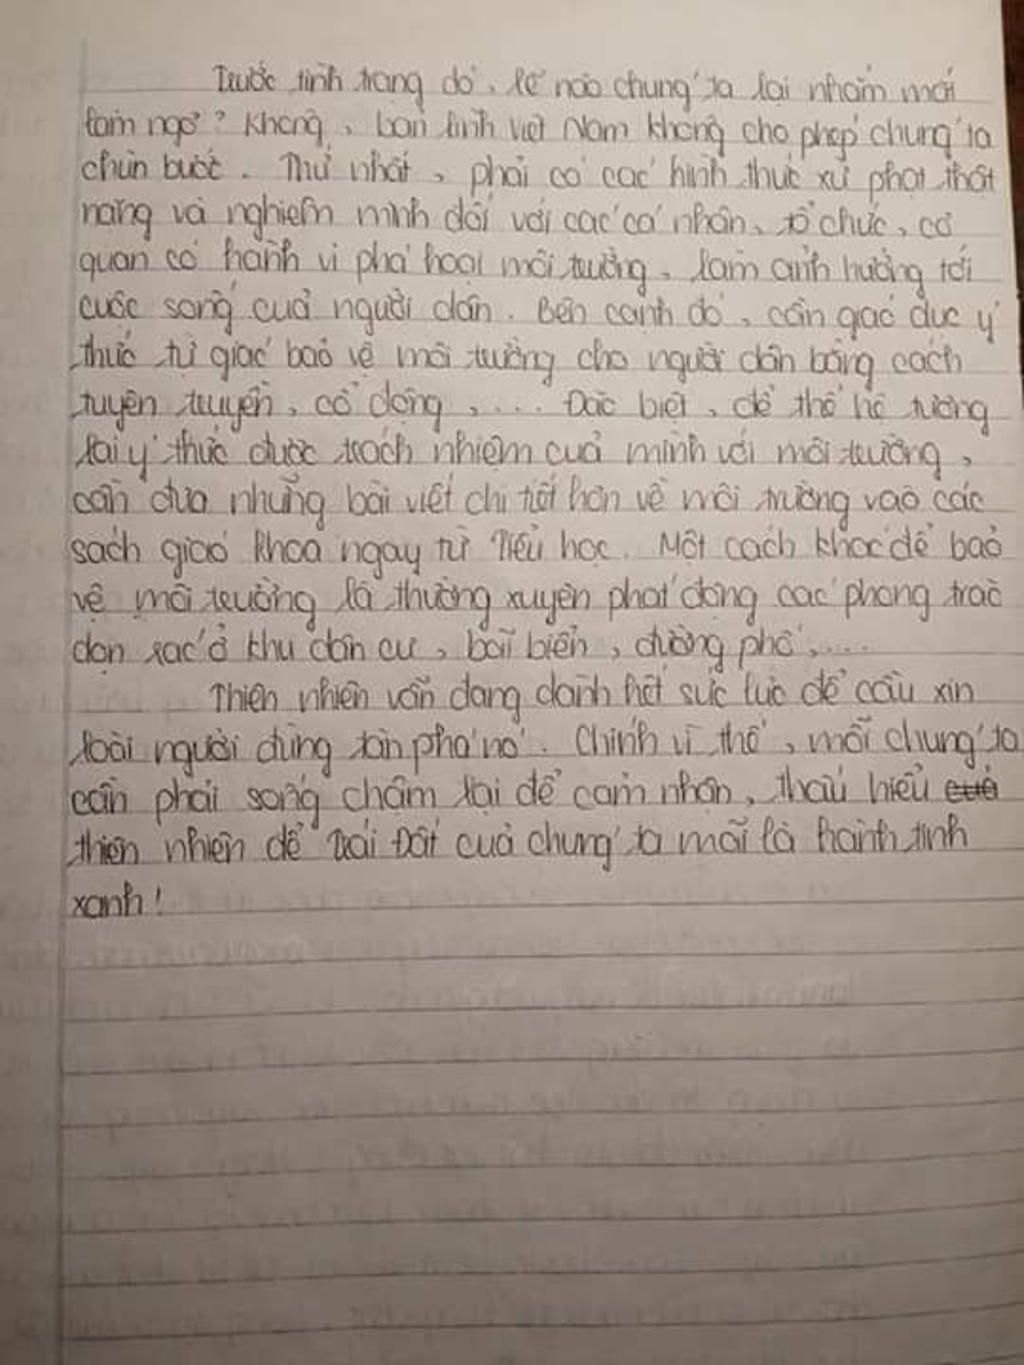 Trước tình trạng đó, lẽ nào chúng ta lại nhắm mắt
làm ngơ? Không, bản lĩnh Việt Nam không cho phép chúng ta
chùn bước. Thứ nhất, phải có các hình thức xử phạt thật
nặng và nghiêm minh đối với các cá nhân, tổ chức, cơ
quan có hành vi phá hoại môi trường, làm ảnh hưởng tới
cuộc sống của người dân. Bên cạnh đó, cần giáo dục ý
thức tự giác bảo vệ môi trường cho người dân bằng cách
tuyên truyền, cổ động,... Đặc biệt, để thế hệ tương
lai ý thức được trách nhiệm của mình với môi trường,
cần đưa những bài viết chi tiết hơn về môi trường vào các
sách giáo khoa ngay từ Tiểu học. Một cách khác để bảo
vệ môi trường là thường xuyên phát động các phong trào
dọn rác ở khu dân cư, bãi biển, đường phố,...
Thiên nhiên vẫn đang dành hết sức lực để cầu xin
loài người đừng tàn phá nó. Chính vì thế, mỗi chúng ta
cần phải sống chậm lại để cảm nhận, thấu hiểu
thiên nhiên để Trái Đất của chúng ta mãi là hành tinh
xanh!